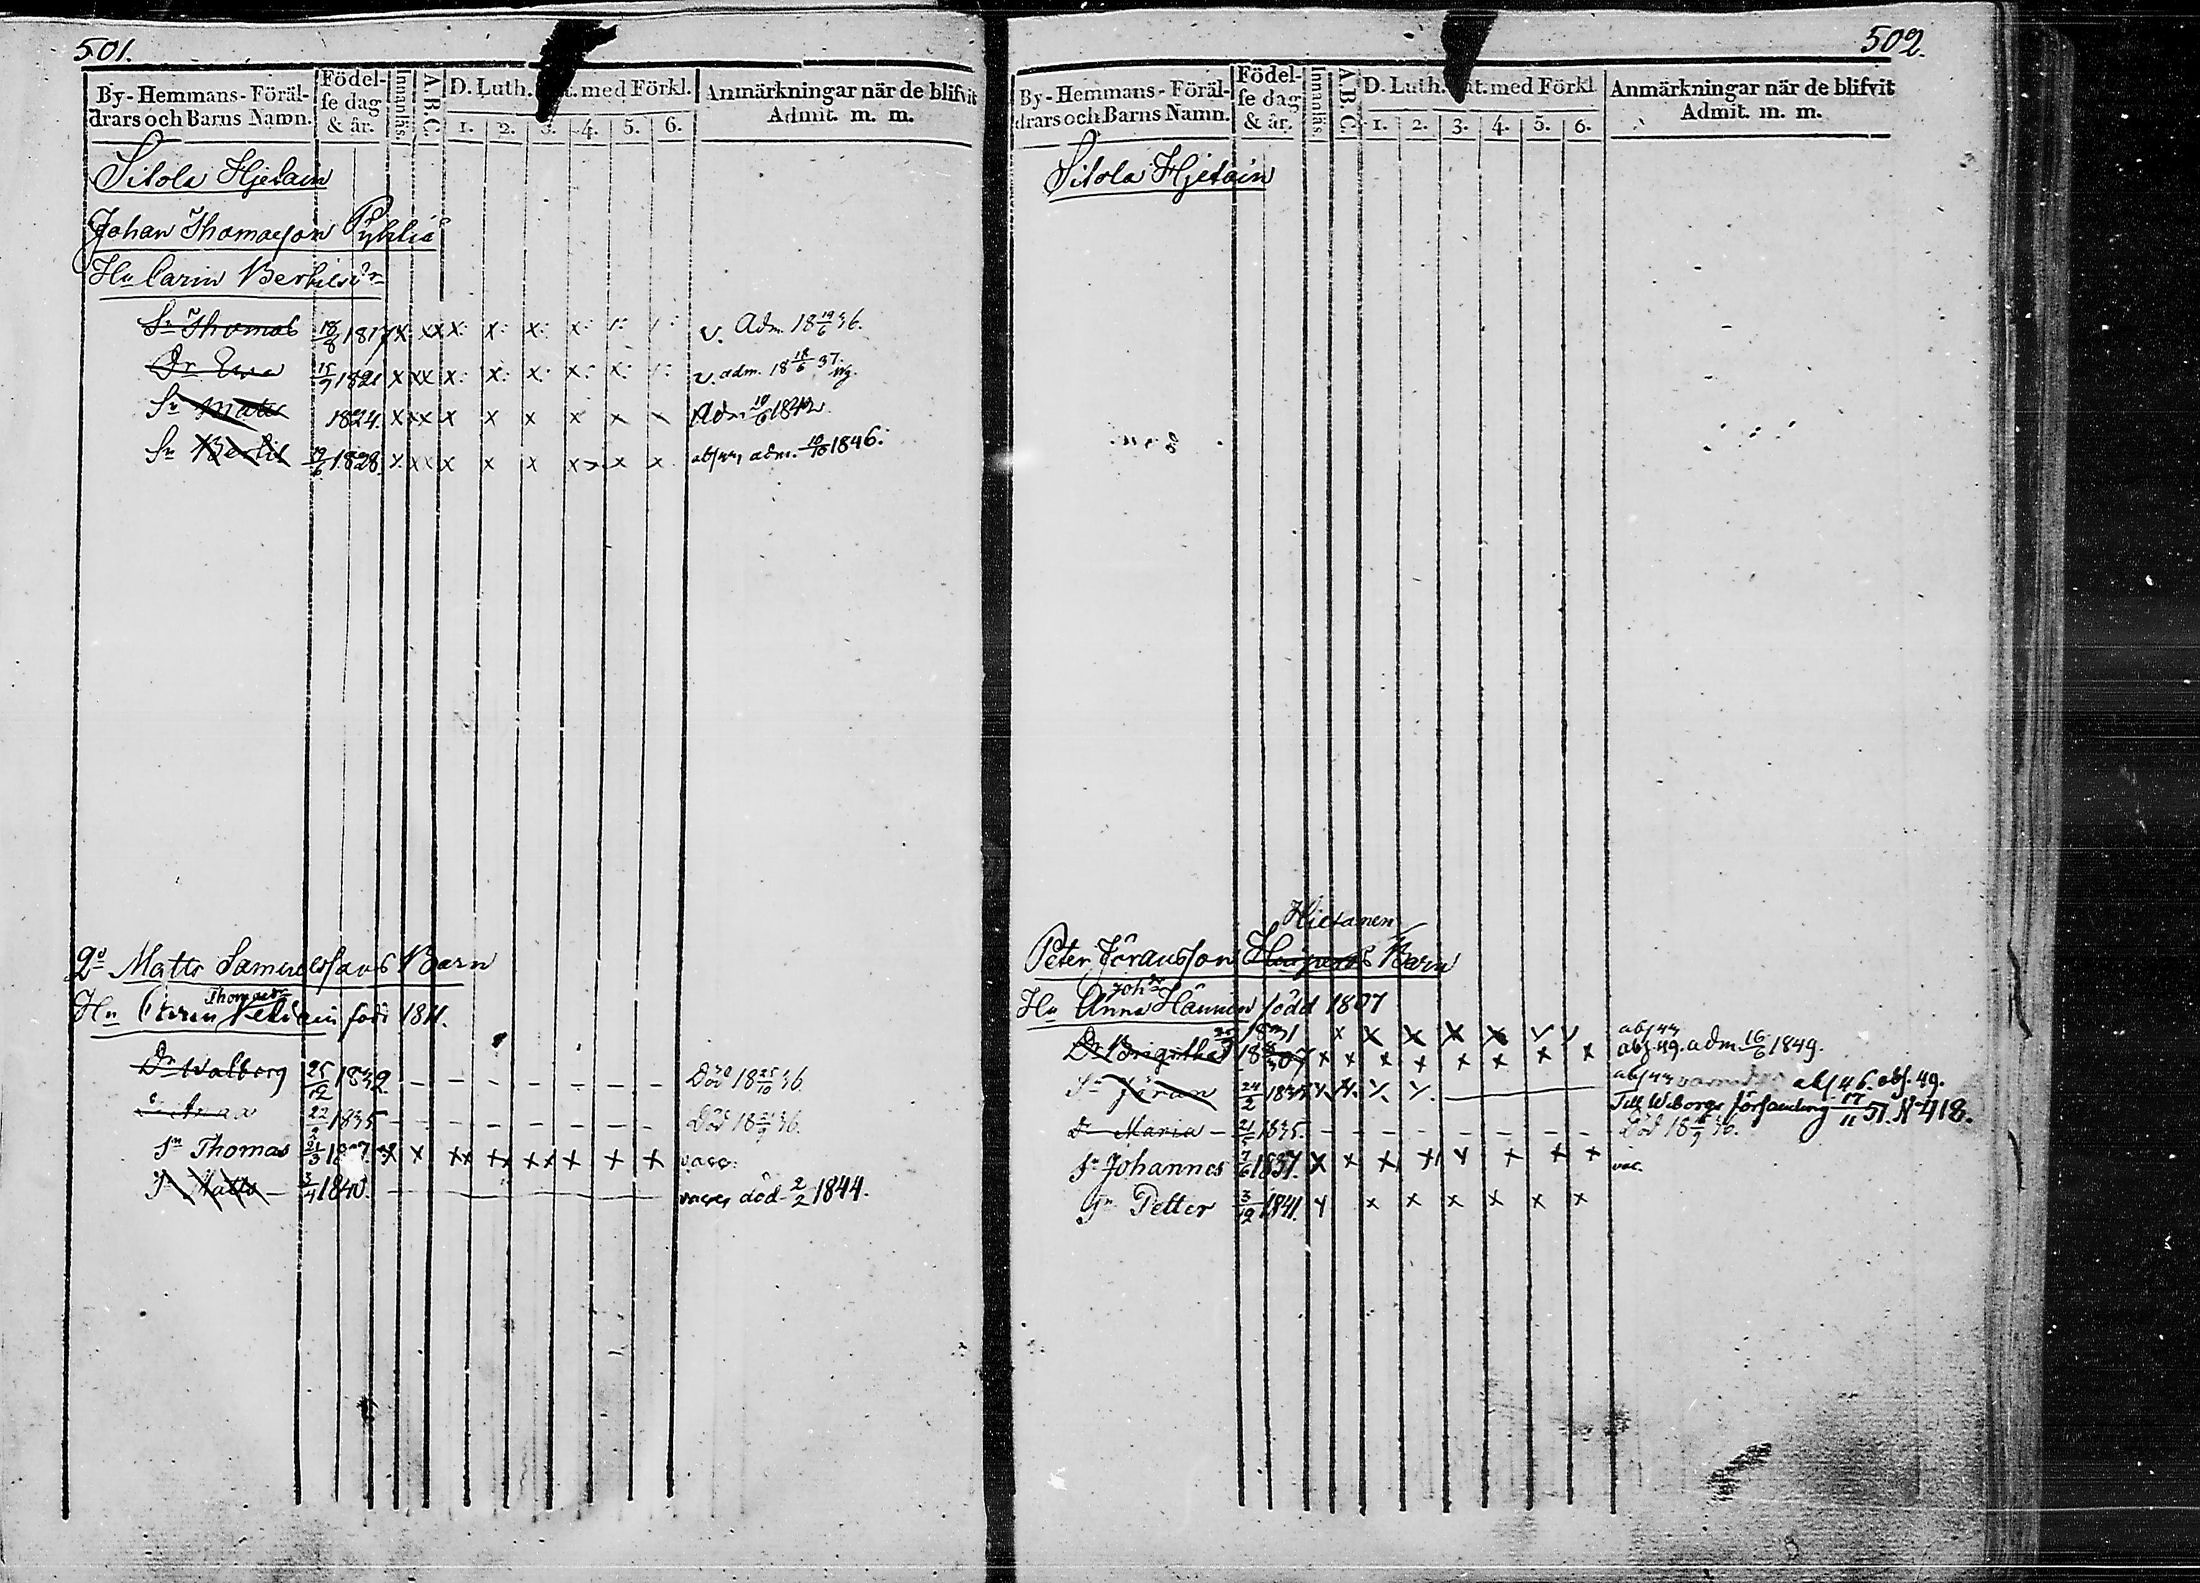 501.
By-Hemmans-Föräl-
drars och Barns Namn.
Födel-
se dag
& år.
Innanläs.
A.B.C.
D. Luth. med Förkl.
1. 2. 3. 4. 5. 6.
Anmärkningar när de blifvit
Admit. m. m.
Sitola Hjetain
Johan Thomasson Pyhtiä
Hu Carin Bertilsdr
Sn Thomas 18/8 1817 x xx x: x: x: x: v. Adm. 18 19/6 36.
Dr Ewa 15/7 1821 x xx x: x: x: x: x: v. adm. 18 18/6 37.
Sn Matts 1824. x xx x x x x x Adm 19/6 1842
Sn Bertil 19/6 1828. x xx x x x x x x adm. 10/10 1846.
Matts Samuelssons Barn
Thomasdr
Hu född 1811.
Dr Walborg 25/12 1832 - - - - - - Död 18 25/10 36.
22 1835 - - - - - - Död 36.
Sn Thomas 21/3 x x xx xx xx x x x vacc.
Sn Matts - 3/4 1840. vacc, död 2/2 1844.
502.
By-Hemmans-Föräl-
drars och Barns Namn.
Födel-
se dag
& år.
Innanläs.
A.B.C.
D. Luth. at. med Förkl.
1. 2. 3. 4. 5. 6.
Anmärkningar när de blifvit
Admit. m. m.
Sitola Hjetain
Hietanen
Peter Göransson Barn
Joh:dr
Hu Anna Hännin född 1807
1831 x x x x x abs 43
Dr Brigitha x x x x x x x x abs. 49. adm. 16/6 1849.
abs 43 abs 46. abs. 49.
Sn Göran 24/2 x x x x Till Wiborgs församling 17/11 51. N 418.
Dr Maria - 21/5 1835. - - - - - - Död 18 36.
Sn Johannes 7/6 1837. x x x x x x x x vac.
Sn Petter 3/12 1841. x x x x x x x